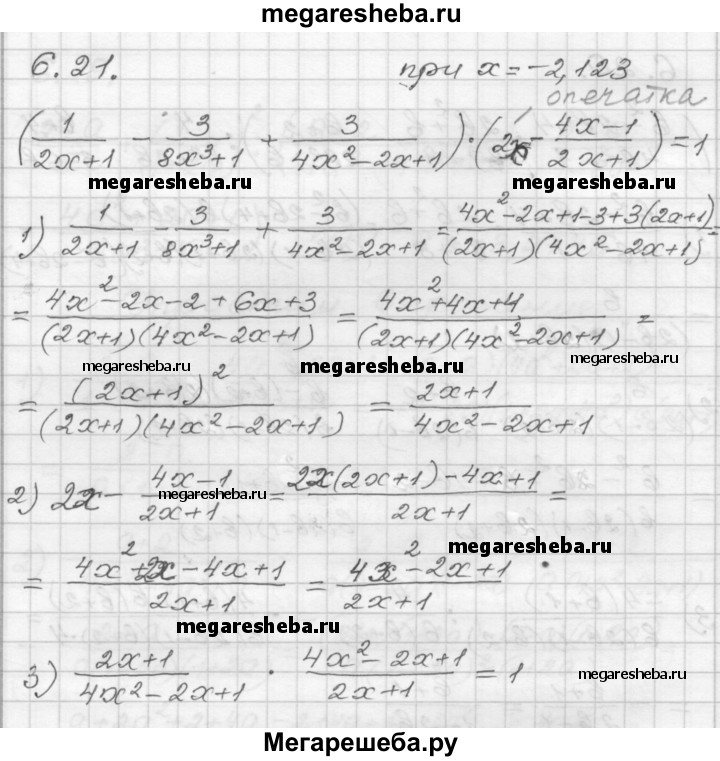 megaresheba.ru
6.21. при x = -2,123
опечатка
(1/(2x+1) - 3/(8x³+1) + 3/(4x²-2x+1)) · (2x - (4x-1)/(2x+1)) = 1
megaresheba.ru megaresheba.ru
1) 1/(2x+1) - 3/(8x³+1) + 3/(4x²-2x+1) = (4x²-2x+1-3+3(2x+1))/((2x+1)(4x²-2x+1)) =
= (4x²-2x-2+6x+3)/((2x+1)(4x²-2x+1)) = (4x²+4x+4)/((2x+1)(4x²-2x+1)) =
megaresheba.ru megaresheba.ru megaresheba.ru
= (2x+1)²/((2x+1)(4x²-2x+1)) = (2x+1)/(4x²-2x+1)
2) 2x - (4x-1)/(2x+1) = (2x(2x+1)-4x+1)/(2x+1) =
megaresheba.ru
megaresheba.ru
= (4x²+2x-4x+1)/(2x+1) = (4x²-2x+1)/(2x+1)
megaresheba.ru
3) (2x+1)/(4x²-2x+1) · (4x²-2x+1)/(2x+1) = 1
megaresheba.ru
Мегарешеба.ру